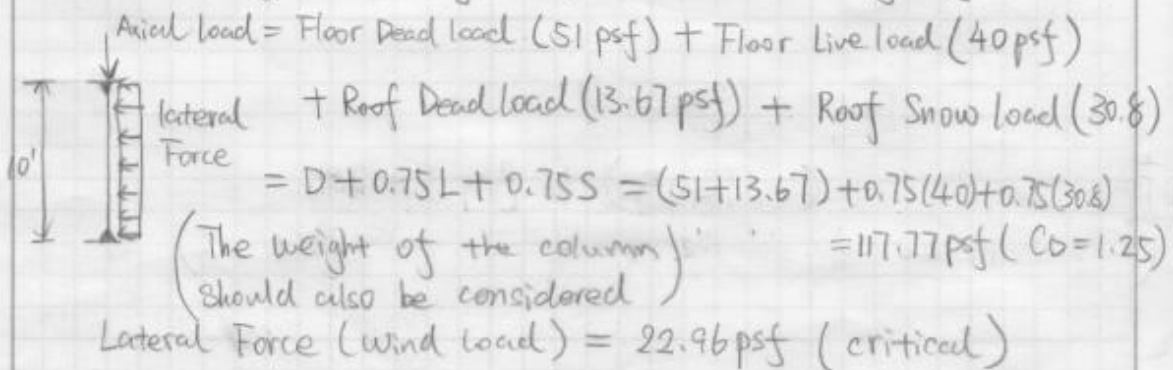 Axial Load = Floor Dead load (51 psf) + Floor Live load (40 psf)
lateral Force
+ Roof Dead load (13.67 psf) + Roof Snow load (30.8)
10'
= D + 0.75L + 0.75S = (51+13.67) + 0.75(40) + 0.75(30.8)
(The weight of the column should also be considered)
= 117.77 psf (CD = 1.25)
Lateral Force (wind load) = 22.96 psf (critical)